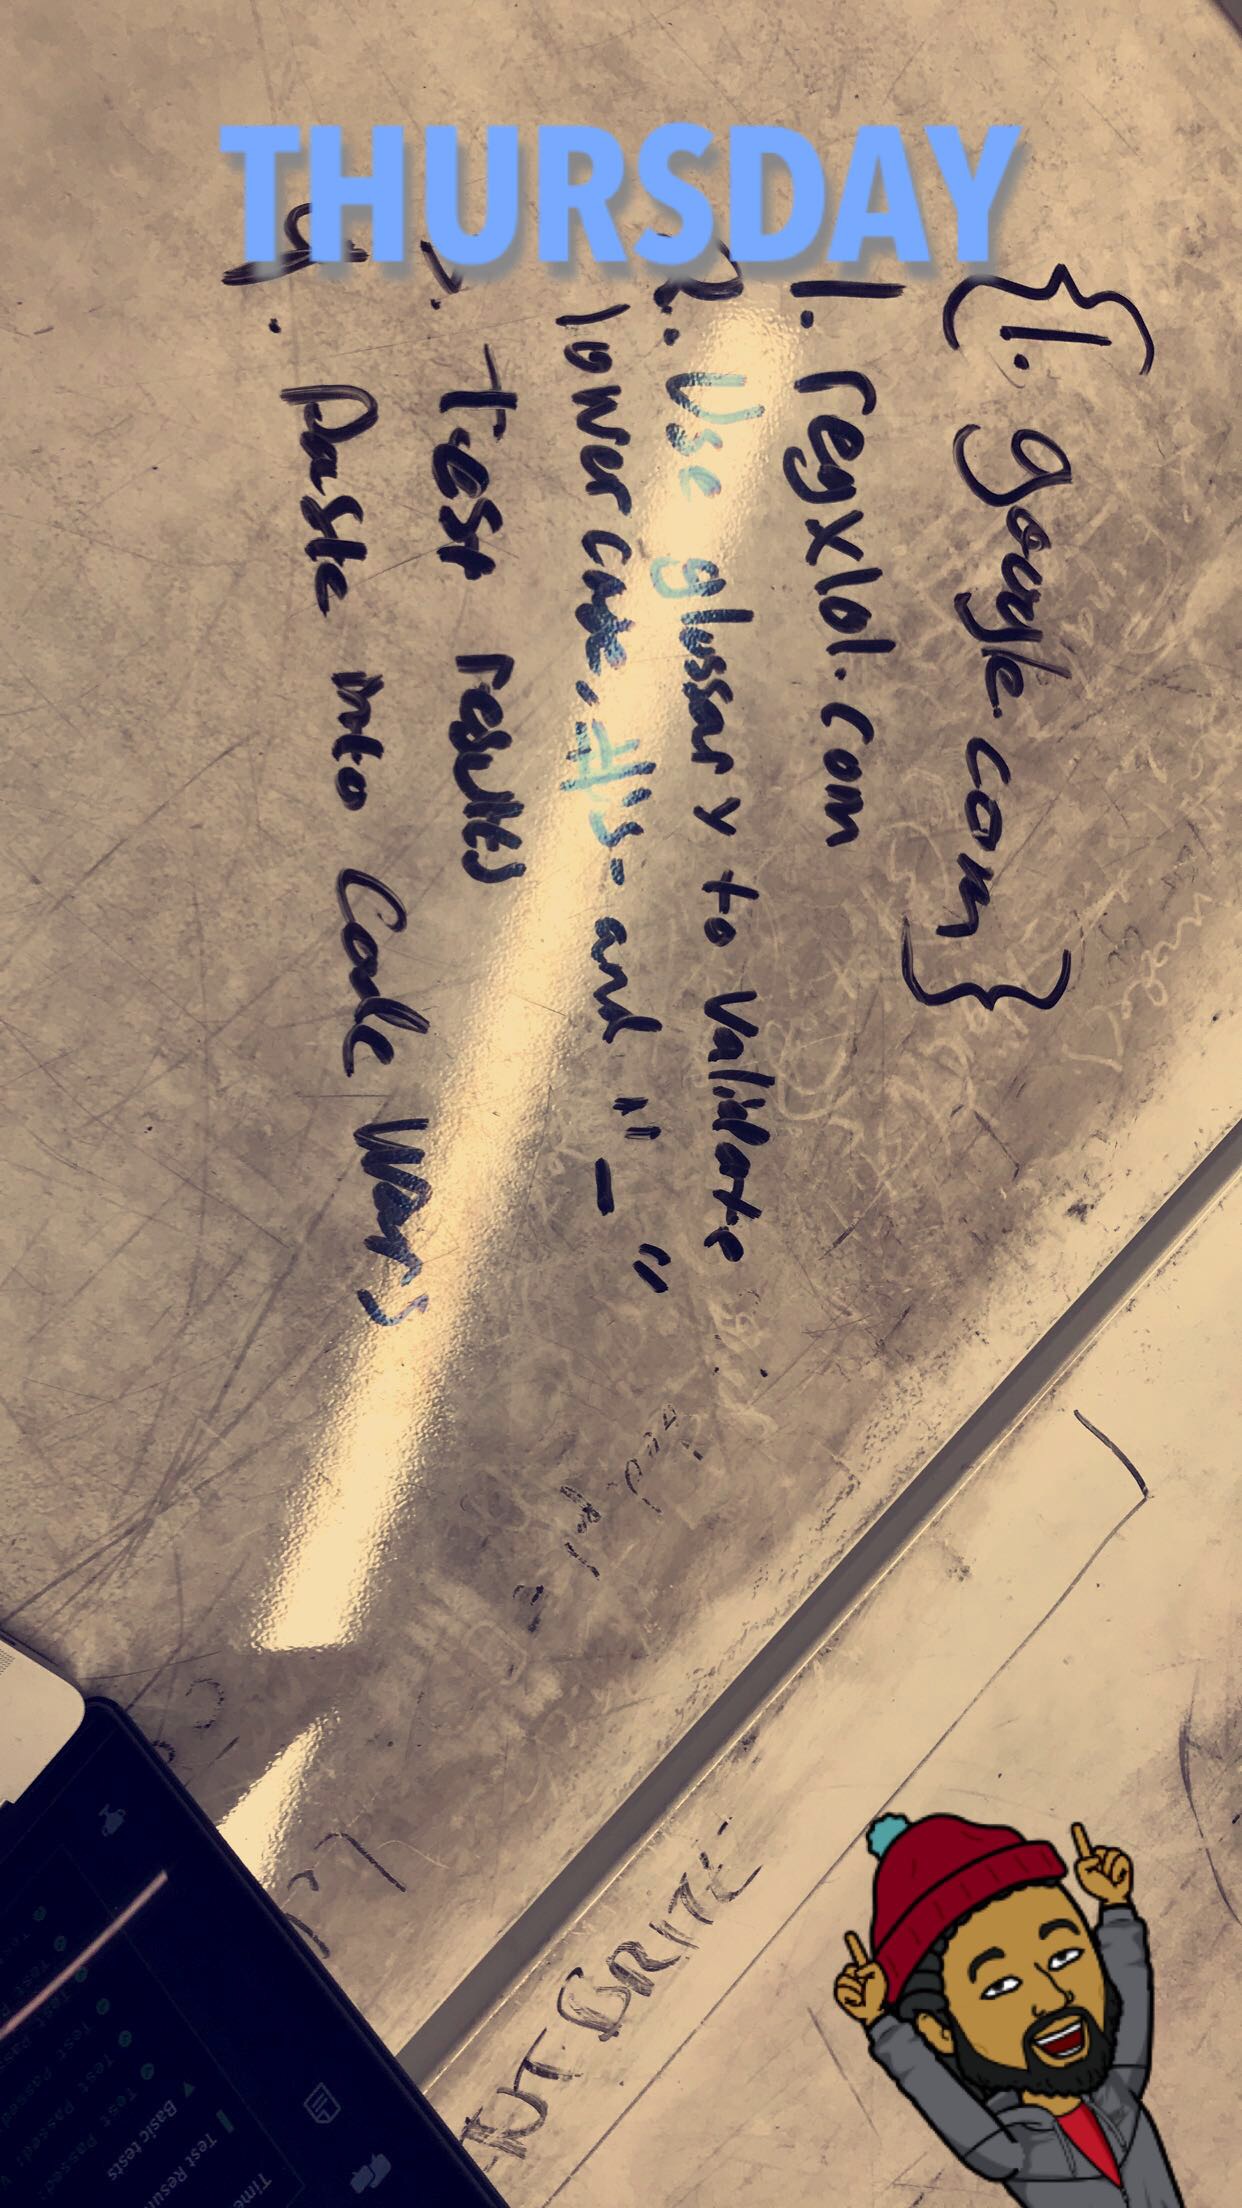 THURSDAY
{1. google.com}
1. regxlol.com
2. Use glussary to validate
lowercase, #'s - and "-"
3. Test results
4. Paste into Code Wars
BRITE
Time
Test Resu
Basic tests
Test Passed
Test Passed